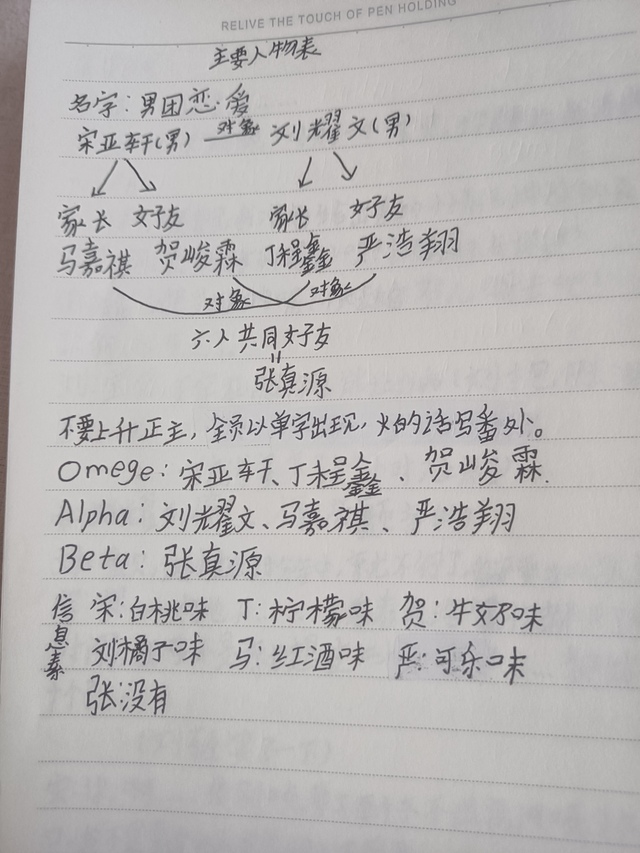 RELIVE THE TOUCH OF PEN HOLDING
主要人物表
名字：男团恋爱
宋亚轩（男） 对象 刘耀文（男）
家长 好友 家长 好友
马嘉祺 贺峻霖 丁程鑫 严浩翔
对象 对象
六人共同好友
=
张真源
不要上升正主，全员以单字出现，火的话写番外。
Omege：宋亚轩、丁程鑫、贺峻霖.
Alpha：刘耀文、马嘉祺、严浩翔
Beta：张真源
信息素 宋：白桃味 丁：柠檬味 贺：牛奶味
刘橘子味 马：红酒味 严：可乐味
张：没有